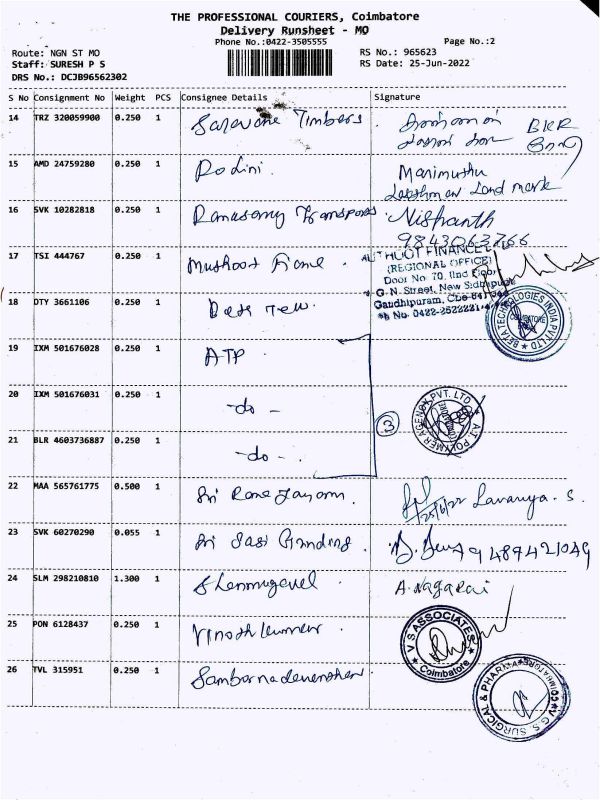 THE PROFESSIONAL COURIERS, Coimbatore
Delivery Runsheet - MO
Phone No.:0422-3505555 Page No.:2
Route: NGN ST MO RS No.: 965623
Staff: SURESH P S RS Date: 25-Jun-2022
DRS No.: DCJB96562302
S No Consignment No Weight PCS Consignee Details Signature
14 TRZ 320059900 0.250 1 Saravana Timbers BKR
15 AMD 24759280 0.250 1 Rodini. Marimuthu
Lakshman Land mark
16 SVK 10282818 0.250 1 Ramasamy Transports. Nishanth
9843063766
17 TSI 444767 0.250 1 Muthoot Fiance.
MUTHOOT FINANCE L
(REGIONAL OFFICE)
Door No. 70, IInd Floor
G.N. Street, New Sidhapudur
Gandhipuram, Cbe-641
Ph No. 0422-252221
18 DTY 3661106 0.250 1
BETA TECHNOLOGIES INDIA PVT LTD
COIMBATORE
19 IXM 501676028 0.250 1 ATP
20 IXM 501676031 0.250 1 -do-
3
A.T. POLYMER AGENCY PVT. LTD.
COIMBATORE
21 BLR 4603736887 0.250 1 -do-.
22 MAA 565761775 0.500 1 Sri 25/6/22 Lavanya. S.
23 SVK 60270290 0.055 1 Sri Sasi Grinding. 9489421049
24 SLM 298210810 1.300 1 Shanmugavel. A. Nagaraj
25 PON 6128437 0.250 1 Vinoth kumar.
V S ASSOCIATES
Coimbatore
26 TVL 315951 0.250 1
V.G.S. SURGICAL & PHARMA
COIMBATORE